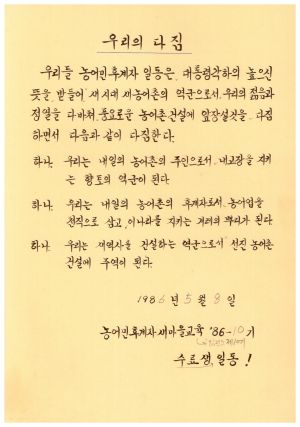 우리의 다짐
우리들 농어민후계자 일동은, 대통령각하의 높으신
뜻을 받들어 새시대 새농어촌의 역군으로서, 우리의 젊음과
정열을 다바쳐 풍요로운 농어촌 건설에 앞장설것을 다짐
하면서 다음과 같이 다짐한다.
하나. 우리는 내일의 농어촌의 주인으로서, 내고장을 지키
는 향토의 역군이 된다.
하나. 우리는 내일의 농어촌의 후계자로서, 농어업을
천직으로 삼고, 이나라를 지키는 겨레의 뿌리가 된다.
하나. 우리는 새역사를 건설하는 역군으로서 선진 농어촌
건설에 주역이 된다.
1986년 5월 8일
농어민후계자 새마을교육 '86-10기
수료생 일동!